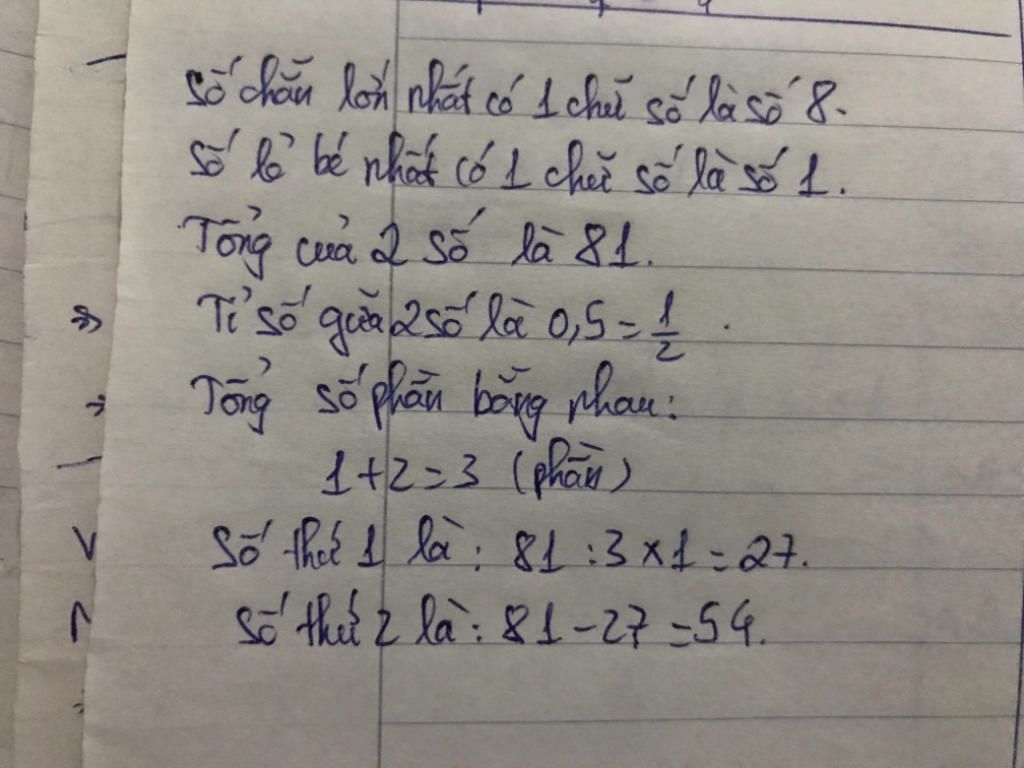 Số chẵn lớn nhất có 1 chữ số là số 8.
Số lẻ bé nhất có 1 chữ số là số 1.
Tổng của 2 số là 81.
Tỉ số giữa 2 số là 0,5 = 1/2.
Tổng số phần bằng nhau:
1 + 2 = 3 (phần)
Số thứ 1 là: 81 : 3 × 1 = 27.
Số thứ 2 là: 81 - 27 = 54.